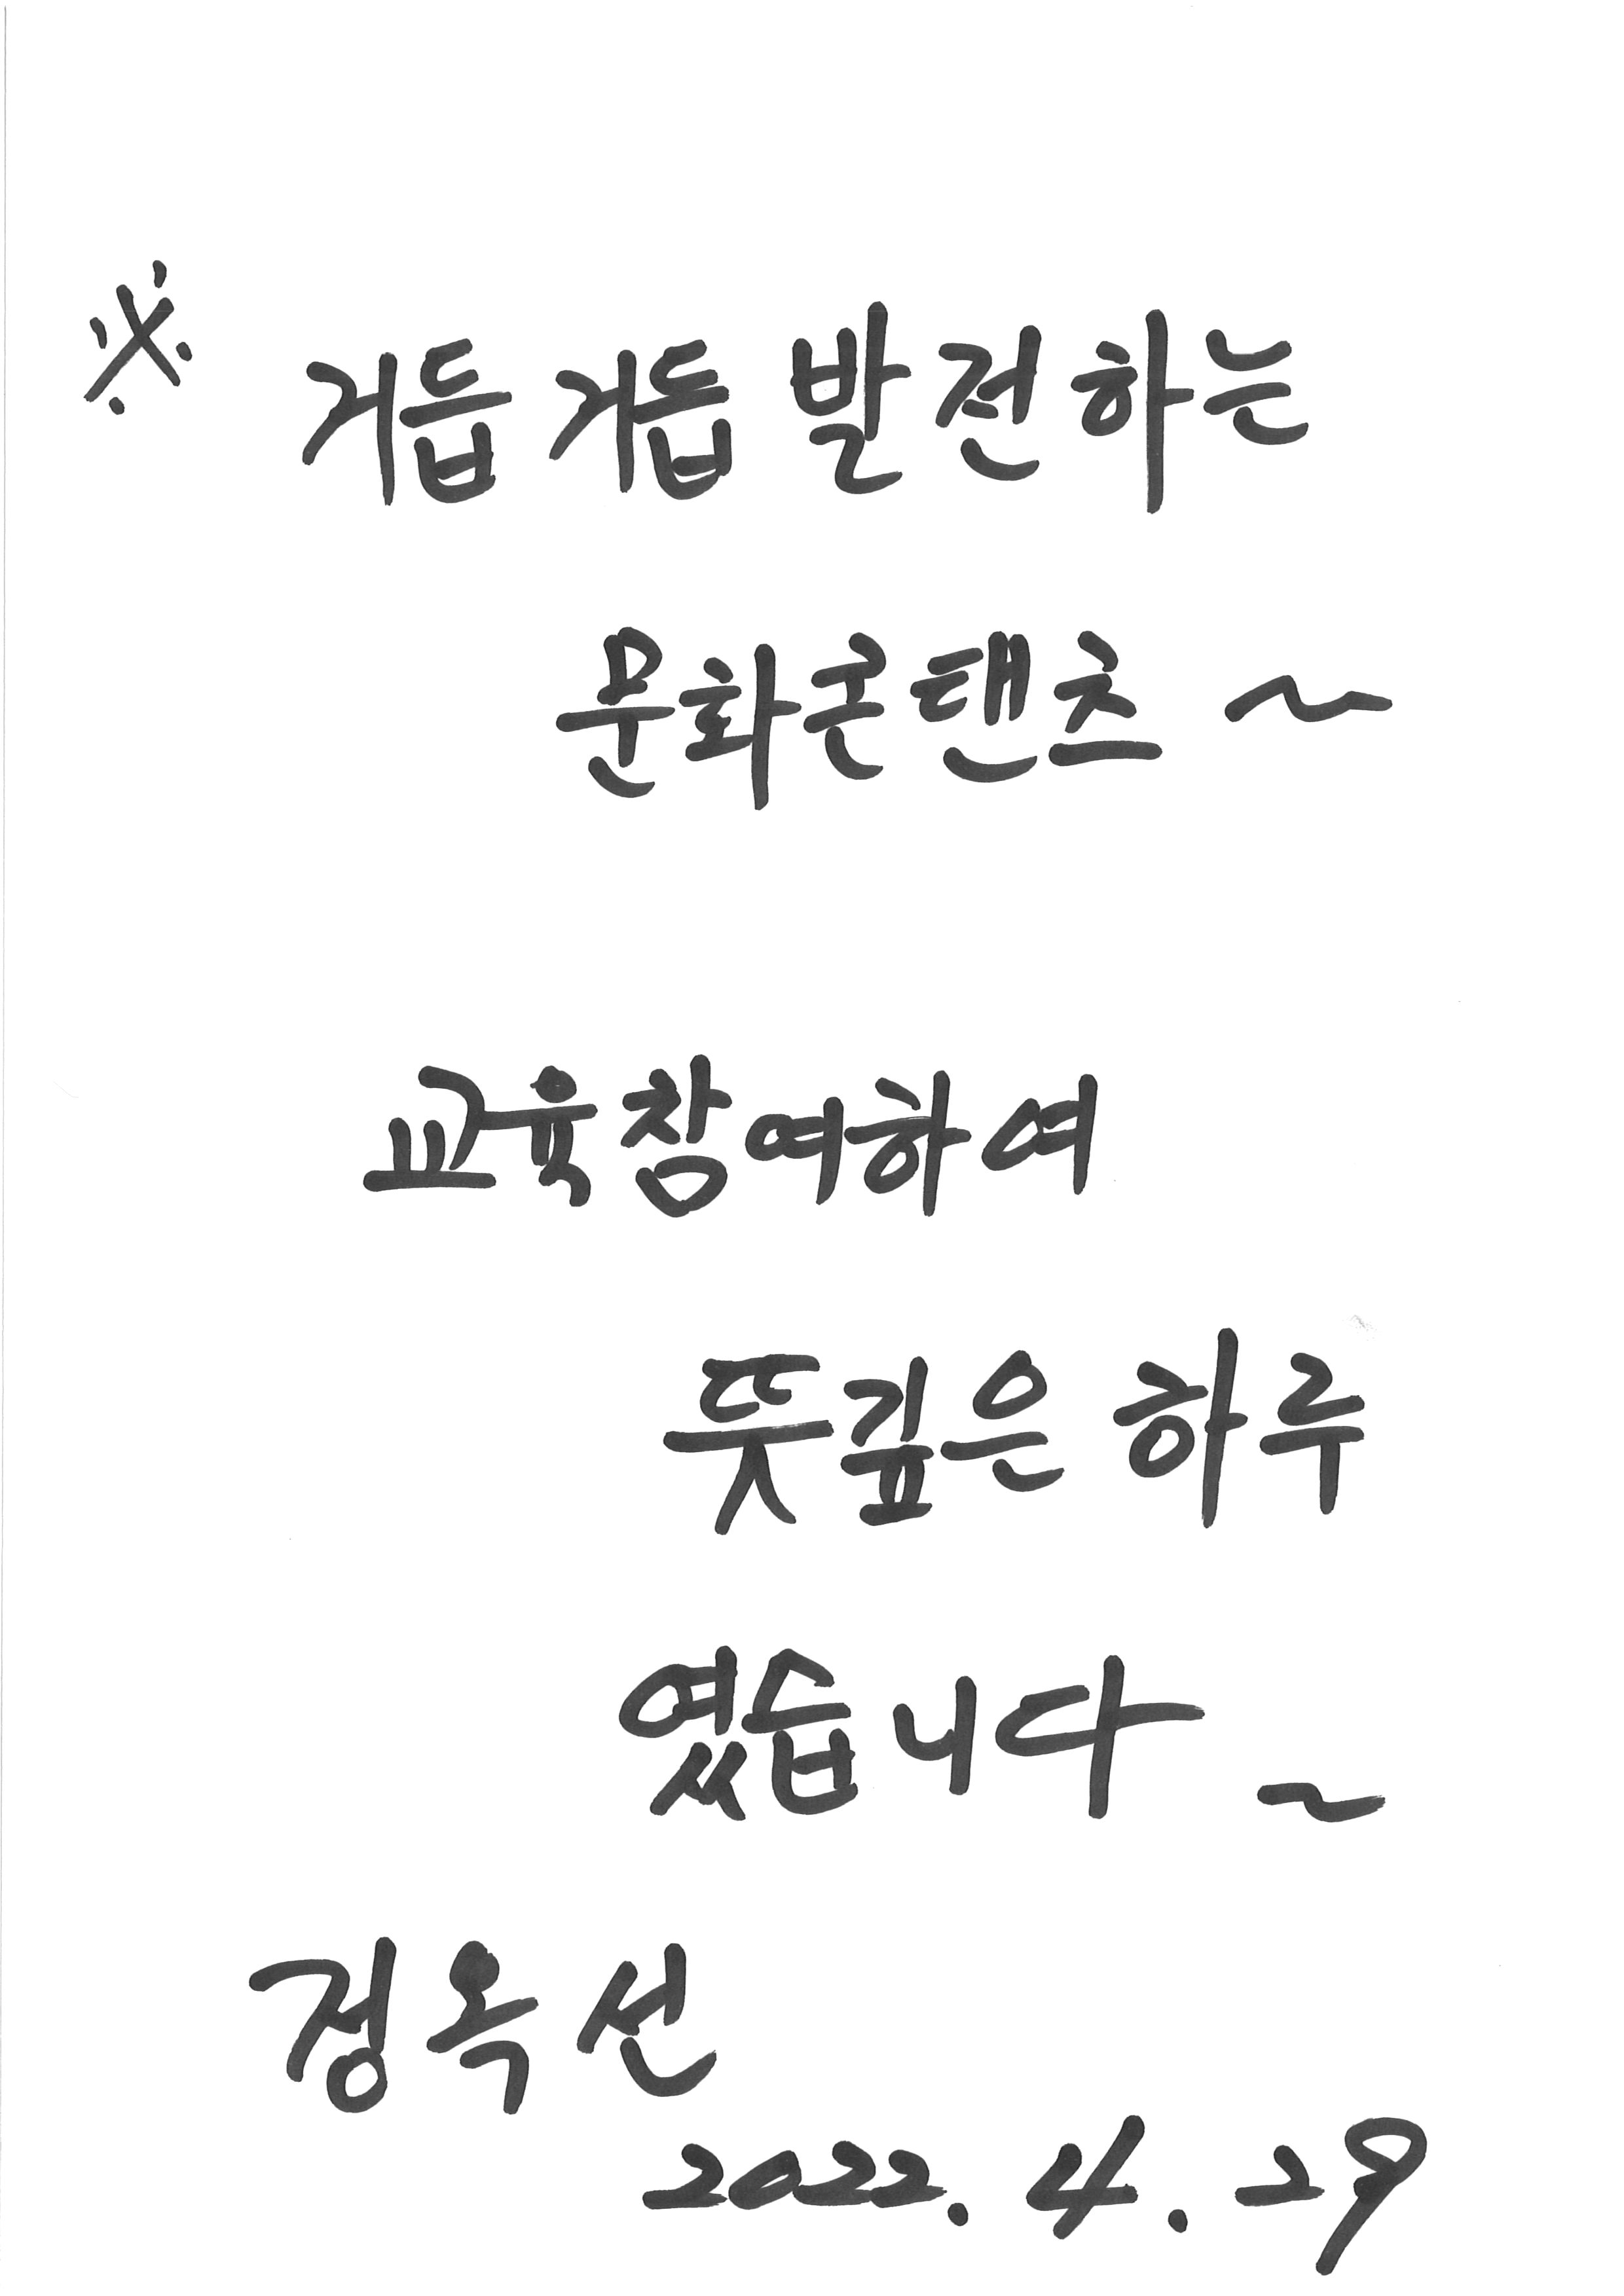 ※ 거듭거듭 발전하는
문화콘탠츠 ~
교육참여하여
뜻깊은 하루
였습니다 ~
정옥선
2022. 4. 29